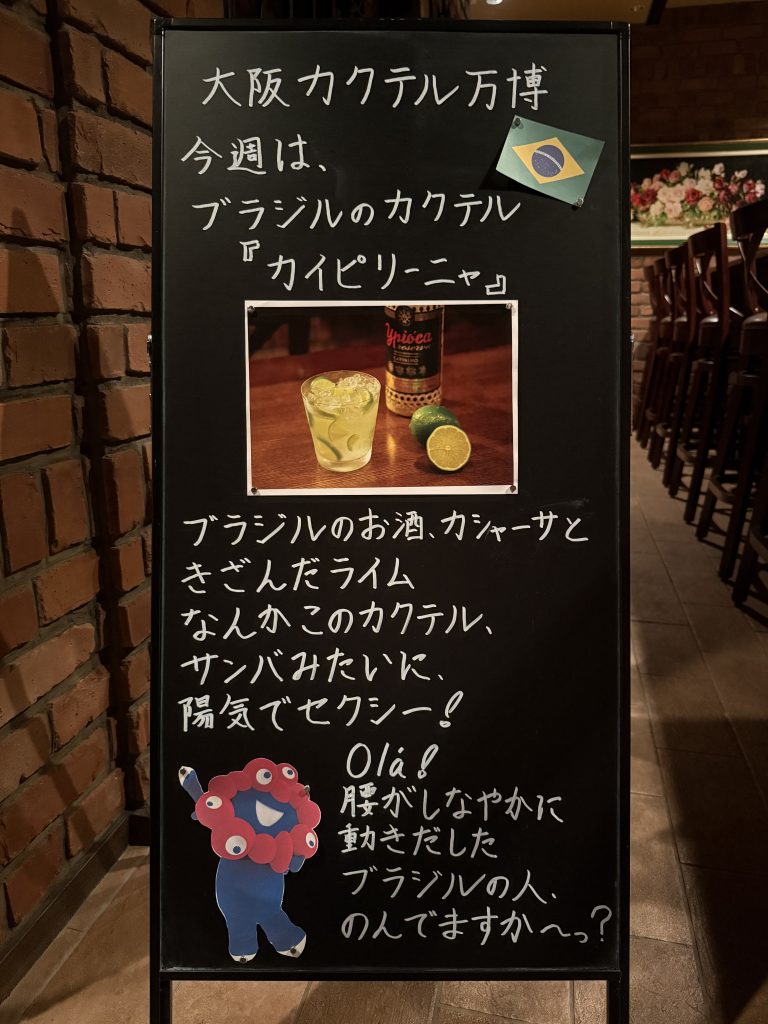 大阪カクテル万博
今週は、
ブラジルのカクテル
『カイピリーニャ』
Ypióca
ブラジルのお酒、カシャーサと
きざんだライム
なんかこのカクテル、
サンバみたいに、
陽気でセクシー!
Olá!
腰がしなやかに
動きだした
ブラジルの人、
のんでますか〜っ?